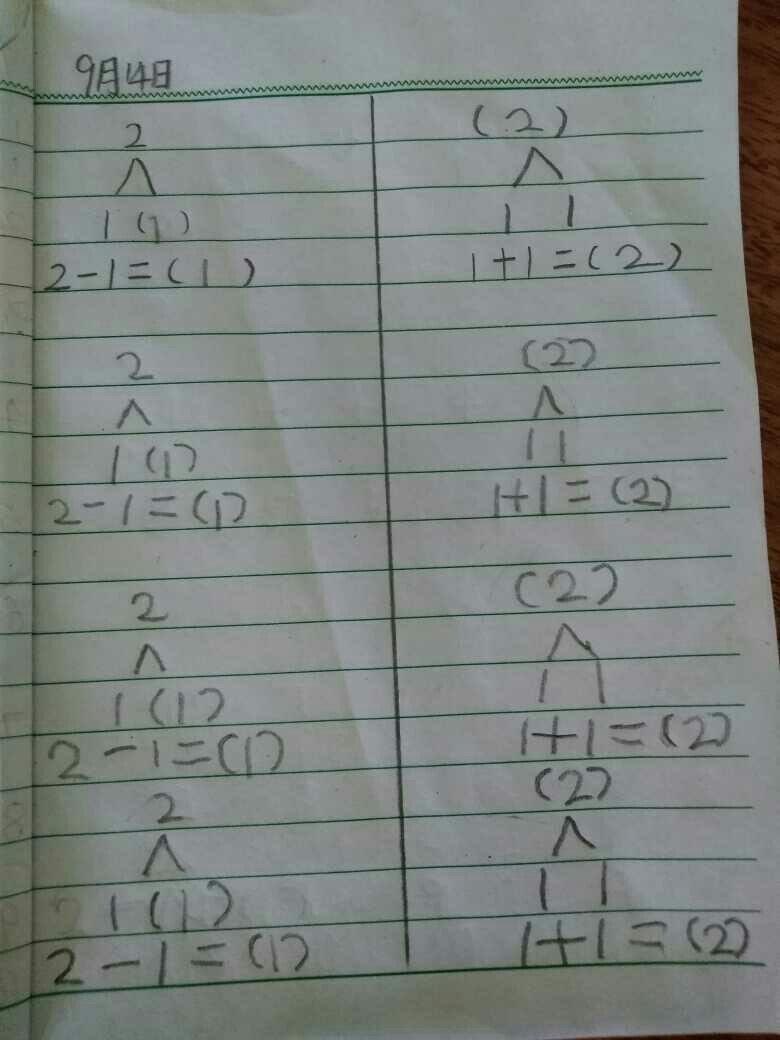 9月14日
2
∧
1 (1)
2-1=(1)
(2)
∧
1 1
1+1=(2)
2
∧
1 (1)
2-1=(1)
(2)
∧
1 1
1+1=(2)
2
∧
1 (1)
2-1=(1)
(2)
∧
1 1
1+1=(2)
2
∧
1 (1)
2-1=(1)
(2)
∧
1 1
1+1=(2)